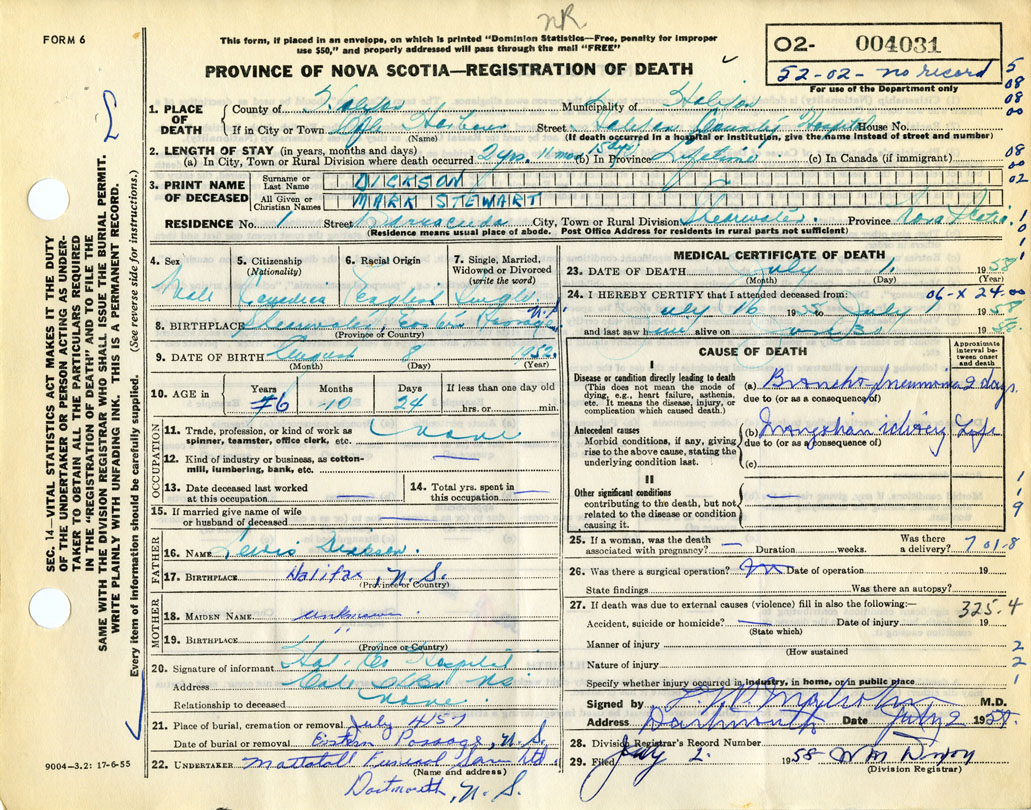 NR
FORM 6
This form, if placed in an envelope, on which is printed "Dominion Statistics—Free, penalty for improper
use $50," and properly addressed will pass through the mail "FREE"
02- 004031
52-02- no record
For use of the Department only
PROVINCE OF NOVA SCOTIA—REGISTRATION OF DEATH
1. PLACE OF DEATH
County of Halifax Municipality of Halifax
If in City or Town Cole Harbour Street Halifax County Hospital House No.
(Name) (If death occurred in a hospital or institution, give the name instead of street and number)
2. LENGTH OF STAY (in years, months and days)
(a) In City, Town or Rural Division where death occurred 2 yrs. 11 mos 15 days (b) In Province Lifetime (c) In Canada (if immigrant)
3. PRINT NAME OF DECEASED
Surname or Last Name DICKSON
All Given or Christian Names MARK STEWART
RESIDENCE No. 1 Street Barracuda City, Town or Rural Division Shearwater Province Nova Scotia
(Residence means usual place of abode. Post Office Address for residents in rural parts not sufficient)
4. Sex 5. Citizenship (Nationality) 6. Racial Origin 7. Single, Married, Widowed or Divorced (write the word)
Male Canadian English Single
8. BIRTHPLACE Shearwater, Eastern Passage N.S.
(Province or Country)
9. DATE OF BIRTH August 8 1952
(Month) (Day) (Year)
10. AGE in Years Months Days If less than one day old
6 10 24 hrs. or min.
OCCUPATION
11. Trade, profession, or kind of work as
spinner, teamster, office clerk, etc. none
12. Kind of industry or business, as cotton-
mill, lumbering, bank, etc. —
13. Date deceased last worked
at this occupation —
14. Total yrs. spent in
this occupation —
15. If married give name of wife
or husband of deceased —
FATHER
16. NAME Lewis Dickson
17. BIRTHPLACE Halifax, N.S.
(Province or Country)
MOTHER
18. MAIDEN NAME unknown
19. BIRTHPLACE "
(Province or Country)
20. Signature of informant Hal. Co Hospital
Address Cole Hbr NS
Relationship to deceased none
21. Place of burial, cremation or removal July 4/57
Date of burial or removal Eastern Passage, N.S.
22. UNDERTAKER Mattatall Funeral Home Ltd.
(Name and address)
Dartmouth, N.S.
9004—3.2: 17-6-55
MEDICAL CERTIFICATE OF DEATH
23. DATE OF DEATH July 1, 1958
(Month) (Day) (Year)
24. I HEREBY CERTIFY that I attended deceased from: 06-X 24.00
July 16 19 to July 1 1958
and last saw him alive on 19
CAUSE OF DEATH
Approximate interval between onset and death
I
Disease or condition directly leading to death
(This does not mean the mode of
dying, e.g., heart failure, asthenia,
etc. It means the disease, injury, or
complication which caused death.)
(a) Broncho pneumonia 2 days
due to (or as a consequence of)
Antecedent causes
Morbid conditions, if any, giving
rise to the above cause, stating the
underlying condition last.
(b) Mongolian idiocy Life
due to (or as a consequence of)
(c)
II
Other significant conditions
contributing to the death, but not
related to the disease or condition
causing it.
25. If a woman, was the death
associated with pregnancy? — Duration weeks. Was there
a delivery? 701.8
26. Was there a surgical operation? no Date of operation 19
State findings Was there an autopsy?
27. If death was due to external causes (violence) fill in also the following:— 325.4
Accident, suicide or homicide? — Date of injury 19
(State which)
Manner of injury
(How sustained
Nature of injury
Specify whether injury occurred in industry, in home, or in public place
Signed by M.D.
Address Dartmouth Date July 2 1958
28. Division Registrar's Record Number
29. Filed July 2. 1958
(Division Registrar)
SEC. 14—VITAL STATISTICS ACT MAKES IT THE DUTY
OF THE UNDERTAKER OR PERSON ACTING AS UNDER-
TAKER TO OBTAIN ALL THE PARTICULARS REQUIRED
IN THE "REGISTRATION OF DEATH" AND TO FILE THE
SAME WITH THE DIVISION REGISTRAR WHO SHALL ISSUE THE BURIAL PERMIT.
WRITE PLAINLY WITH UNFADING INK. THIS IS A PERMANENT RECORD.
Every item of information should be carefully supplied. (See reverse side for instructions.)
5
08
08
00
08
00
02
1
0
1
1
1
9
2
2
1